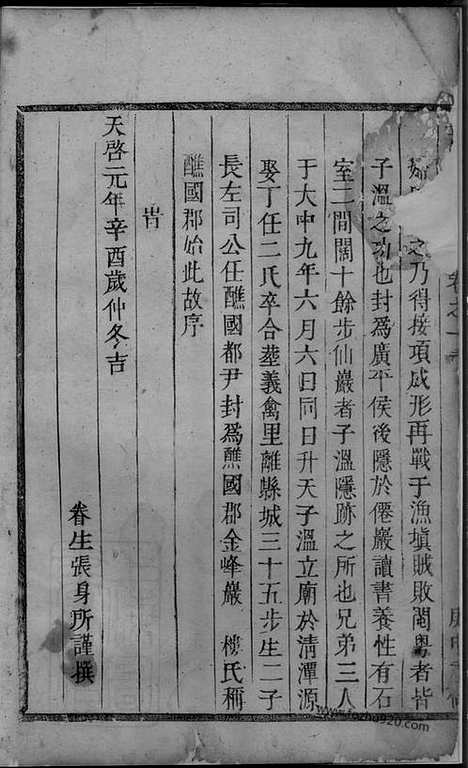 之乃得接項成形再戰于漁塡賊敗閩粵者皆
子溫之功也封爲廣平侯後隱於僊巖讀書養性有石
室二間闊十餘步仙巖者子溫隱跡之所也兄弟三人
于大中九年六月六日同日升天子溫立廟於清潭源
娶丁任二氏卒合葬義禽里離縣城三十五步生二子
長左司公任醮國都尹封爲醮國郡金峰巖 樓氏稱
醮國郡始此故序
旹
天啓二元年辛酉歲仲冬吉
眷生張身所謹撰
卷之一
www.fozhu920.com